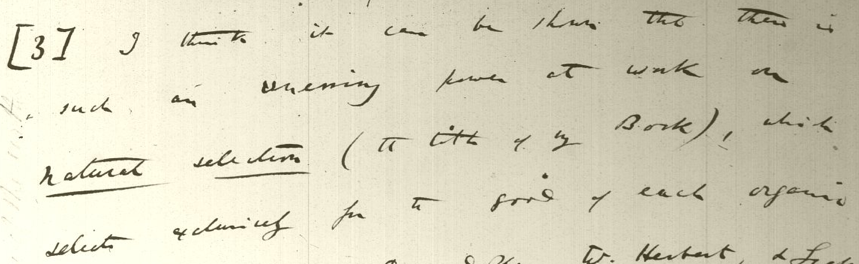 [3] I think it can be shown that there is
such an unerring power at work or
natural selection (the title of my Book), which
selects exclusively for the good of each organic
W. Herbert, &